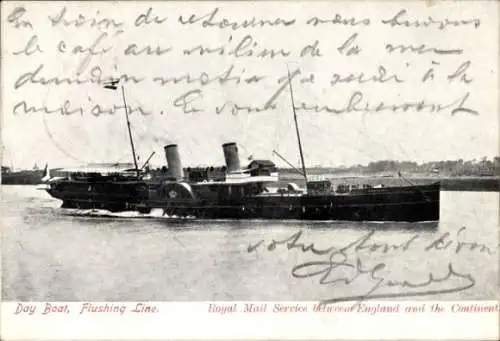 En train de retourner nous buvons
le café au milieu de la mer
demain matin je serai à la
maison. Je vous embrasse
votre tout dévoué
Day Boat, Flushing Line.
Royal Mail Service between England and the Continent.